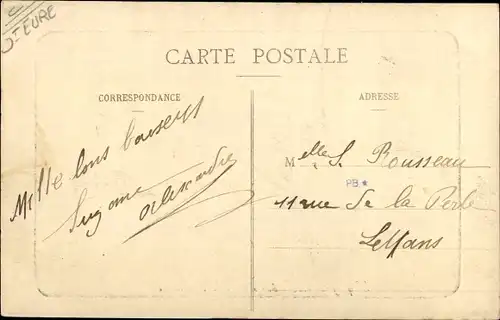 St EURE
CARTE POSTALE
CORRESPONDANCE
ADRESSE
Mille bons baisers
Suzanne
Alexandre
Melle S. Rousseau
PB*
11 rue de la Perle
Le Mans